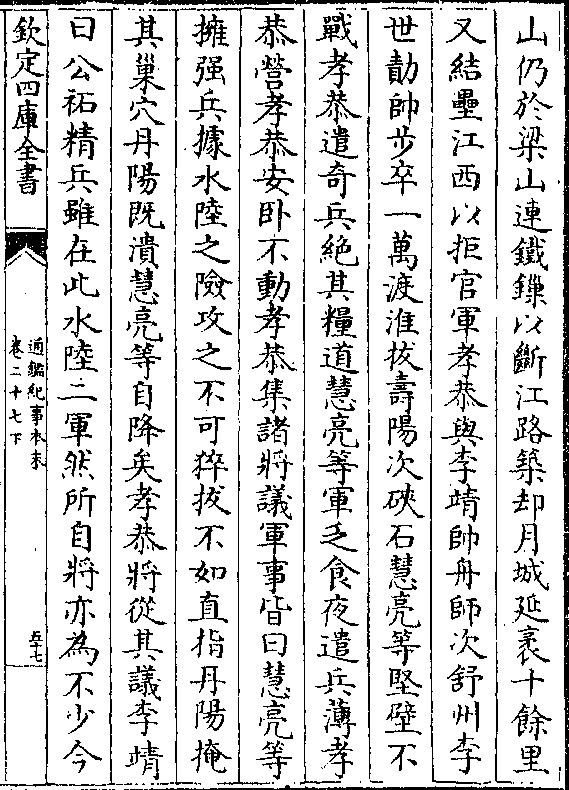 山仍於梁山連鐵鏁以斷江路築却月城延袤十餘里
又結壘江西以拒官軍孝恭與李靖帥舟師次舒州李
世勣帥步卒一萬渡淮拔壽陽次硤石慧亮等堅壁不
戰孝恭遣奇兵絶其糧道慧亮等軍乏食夜遣兵薄孝
恭營孝恭安卧不動孝恭集諸將議軍事皆曰慧亮等
擁强兵據水陸之險攻之不可猝拔不如直指丹陽掩
其巢穴丹陽既潰慧亮等自降矣孝恭將從其議李靖
曰公祏精兵雖在此水陸二軍然所自將亦為不少今
欽定四庫全書
通鑑紀事本末
卷二十七下
五十七